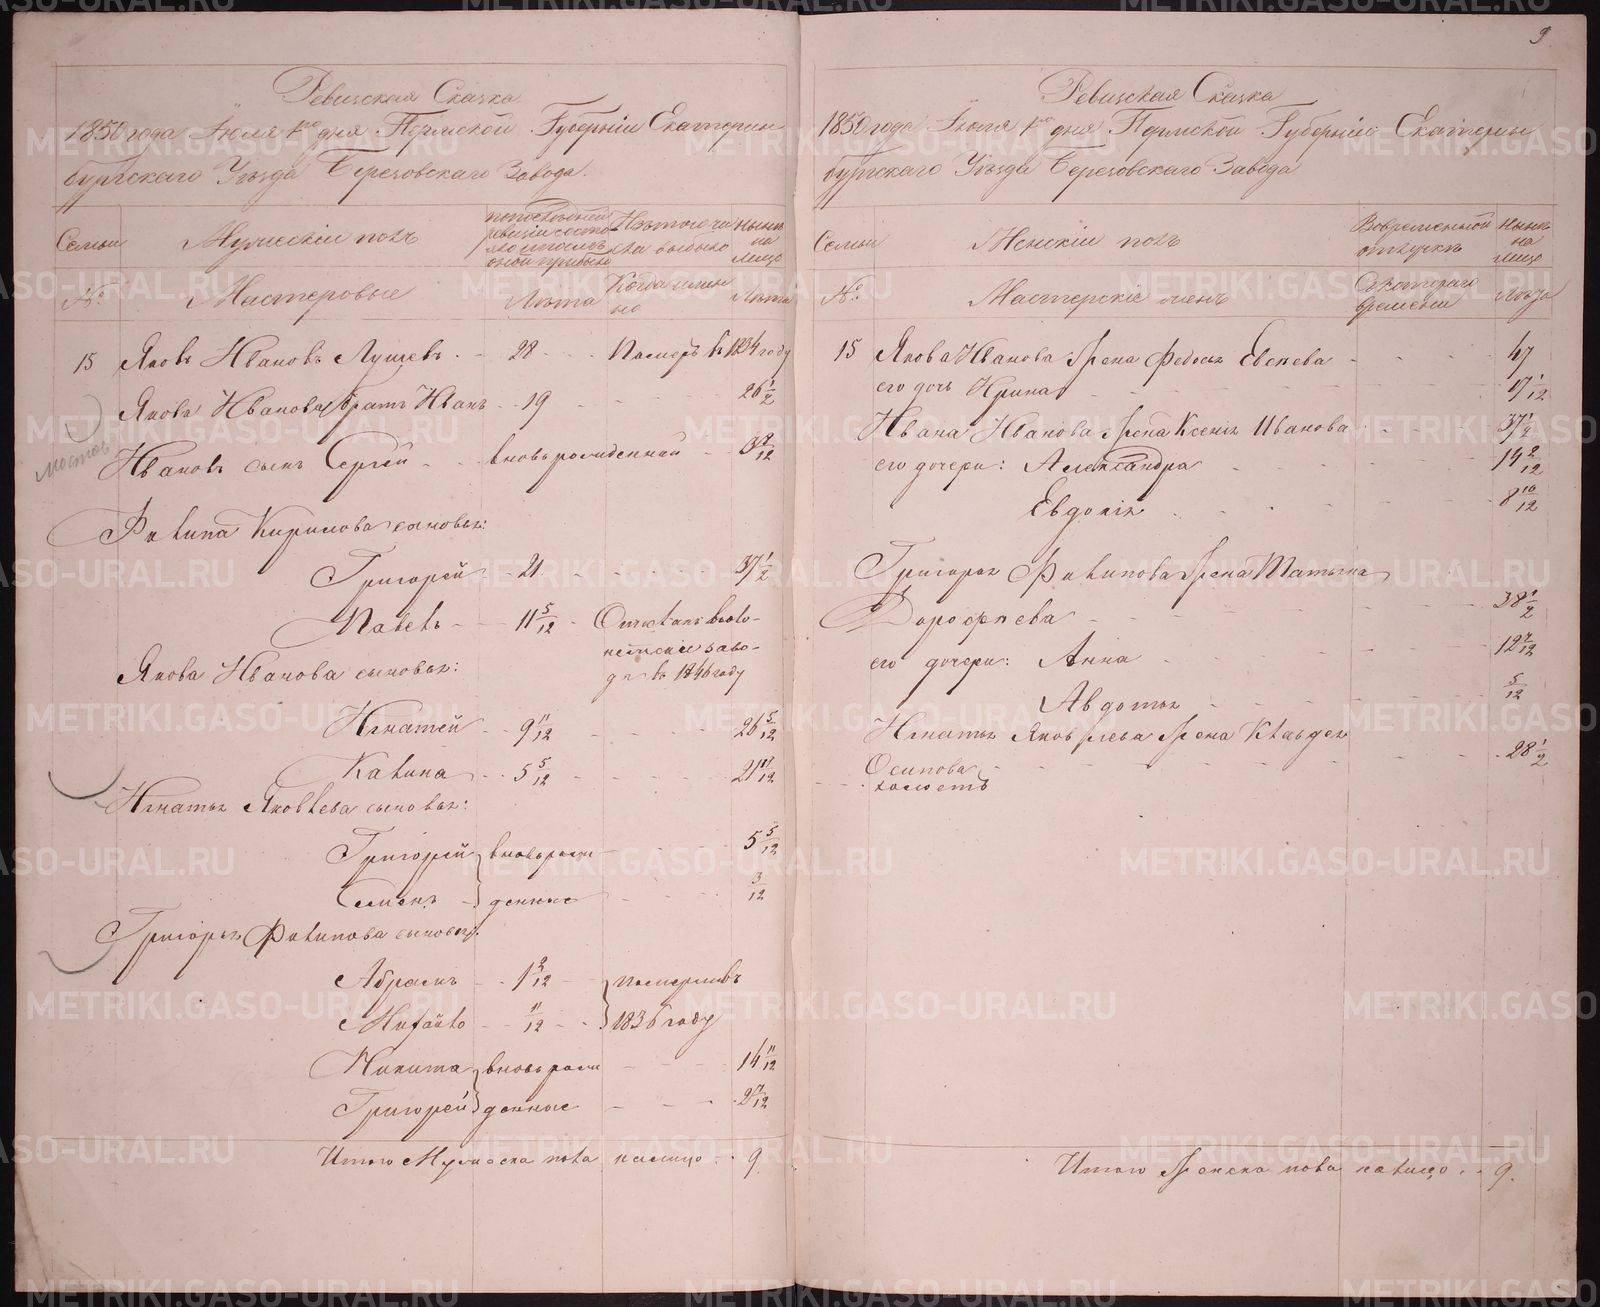 9
Ревизская Сказка
1850 года Июля 1го дня Пермской Губернiи Екатерин
бургскаго Уѣзда Березовскаго Завода.
Семьи
Мужескiй полъ
по последней ревизiи состояло и после оной прибыло
Изъ того числа выбыло
Нынѣ на лицо
№
Мастеровые
Лѣта
Когда именно
Лѣта
15 Яковъ Ивановъ 28 Померъ в 1834 году
Якова Иванова братъ Иванъ 19 26 1/2
Ивановъ сынъ Сергей вновь рожденный
Филипа Кирилова сыновья:
Григорей 21 37 1/2
Павелъ 11 5/12
в 1846 году
Якова Иванова сыновья:
Игнатей 9 11/12 26 5/12
Калина 5 5/12 21 11/12
Игнатья Яковлева сыновья:
Григорей вновь рож 5 5/12
Семенъ денные 3/12
Григорья Филипова сыновья:
Абрамъ 1 померли въ
Михайло 11/12 1836 году
Никита вновь рож 14 11/12
Григорей денные
Итого Мужеска пола налицо 9.
Ревизская Сказка
1850 года Июля 1го дня Пермской Губернiи Екатерин
бургскаго Уѣзда Березовскаго Завода
Семьи
Женскiй полъ
Вовременной отлучкѣ
Нынѣ на лицо
№
Мастерскiе женъ
Скотораго времени
Лѣта
15 Якова Иванова жена Федосья 47
его дочь Ирина 17 1/12
Ивана Иванова жена Ксенiя Иванова 37 1/2
его дочери: Александра 14
Евдокiя 8 10/12
Григорья Филипова жена Татьяна
Дорофѣева 38 1/2
его дочери: Анна 12
Авдотья 5/12
Игнатья Яковлева жена Клавдея
Осипова 28 1/2
Итого Женска пола налицо 9.
METRIKI.GASO-URAL.RU